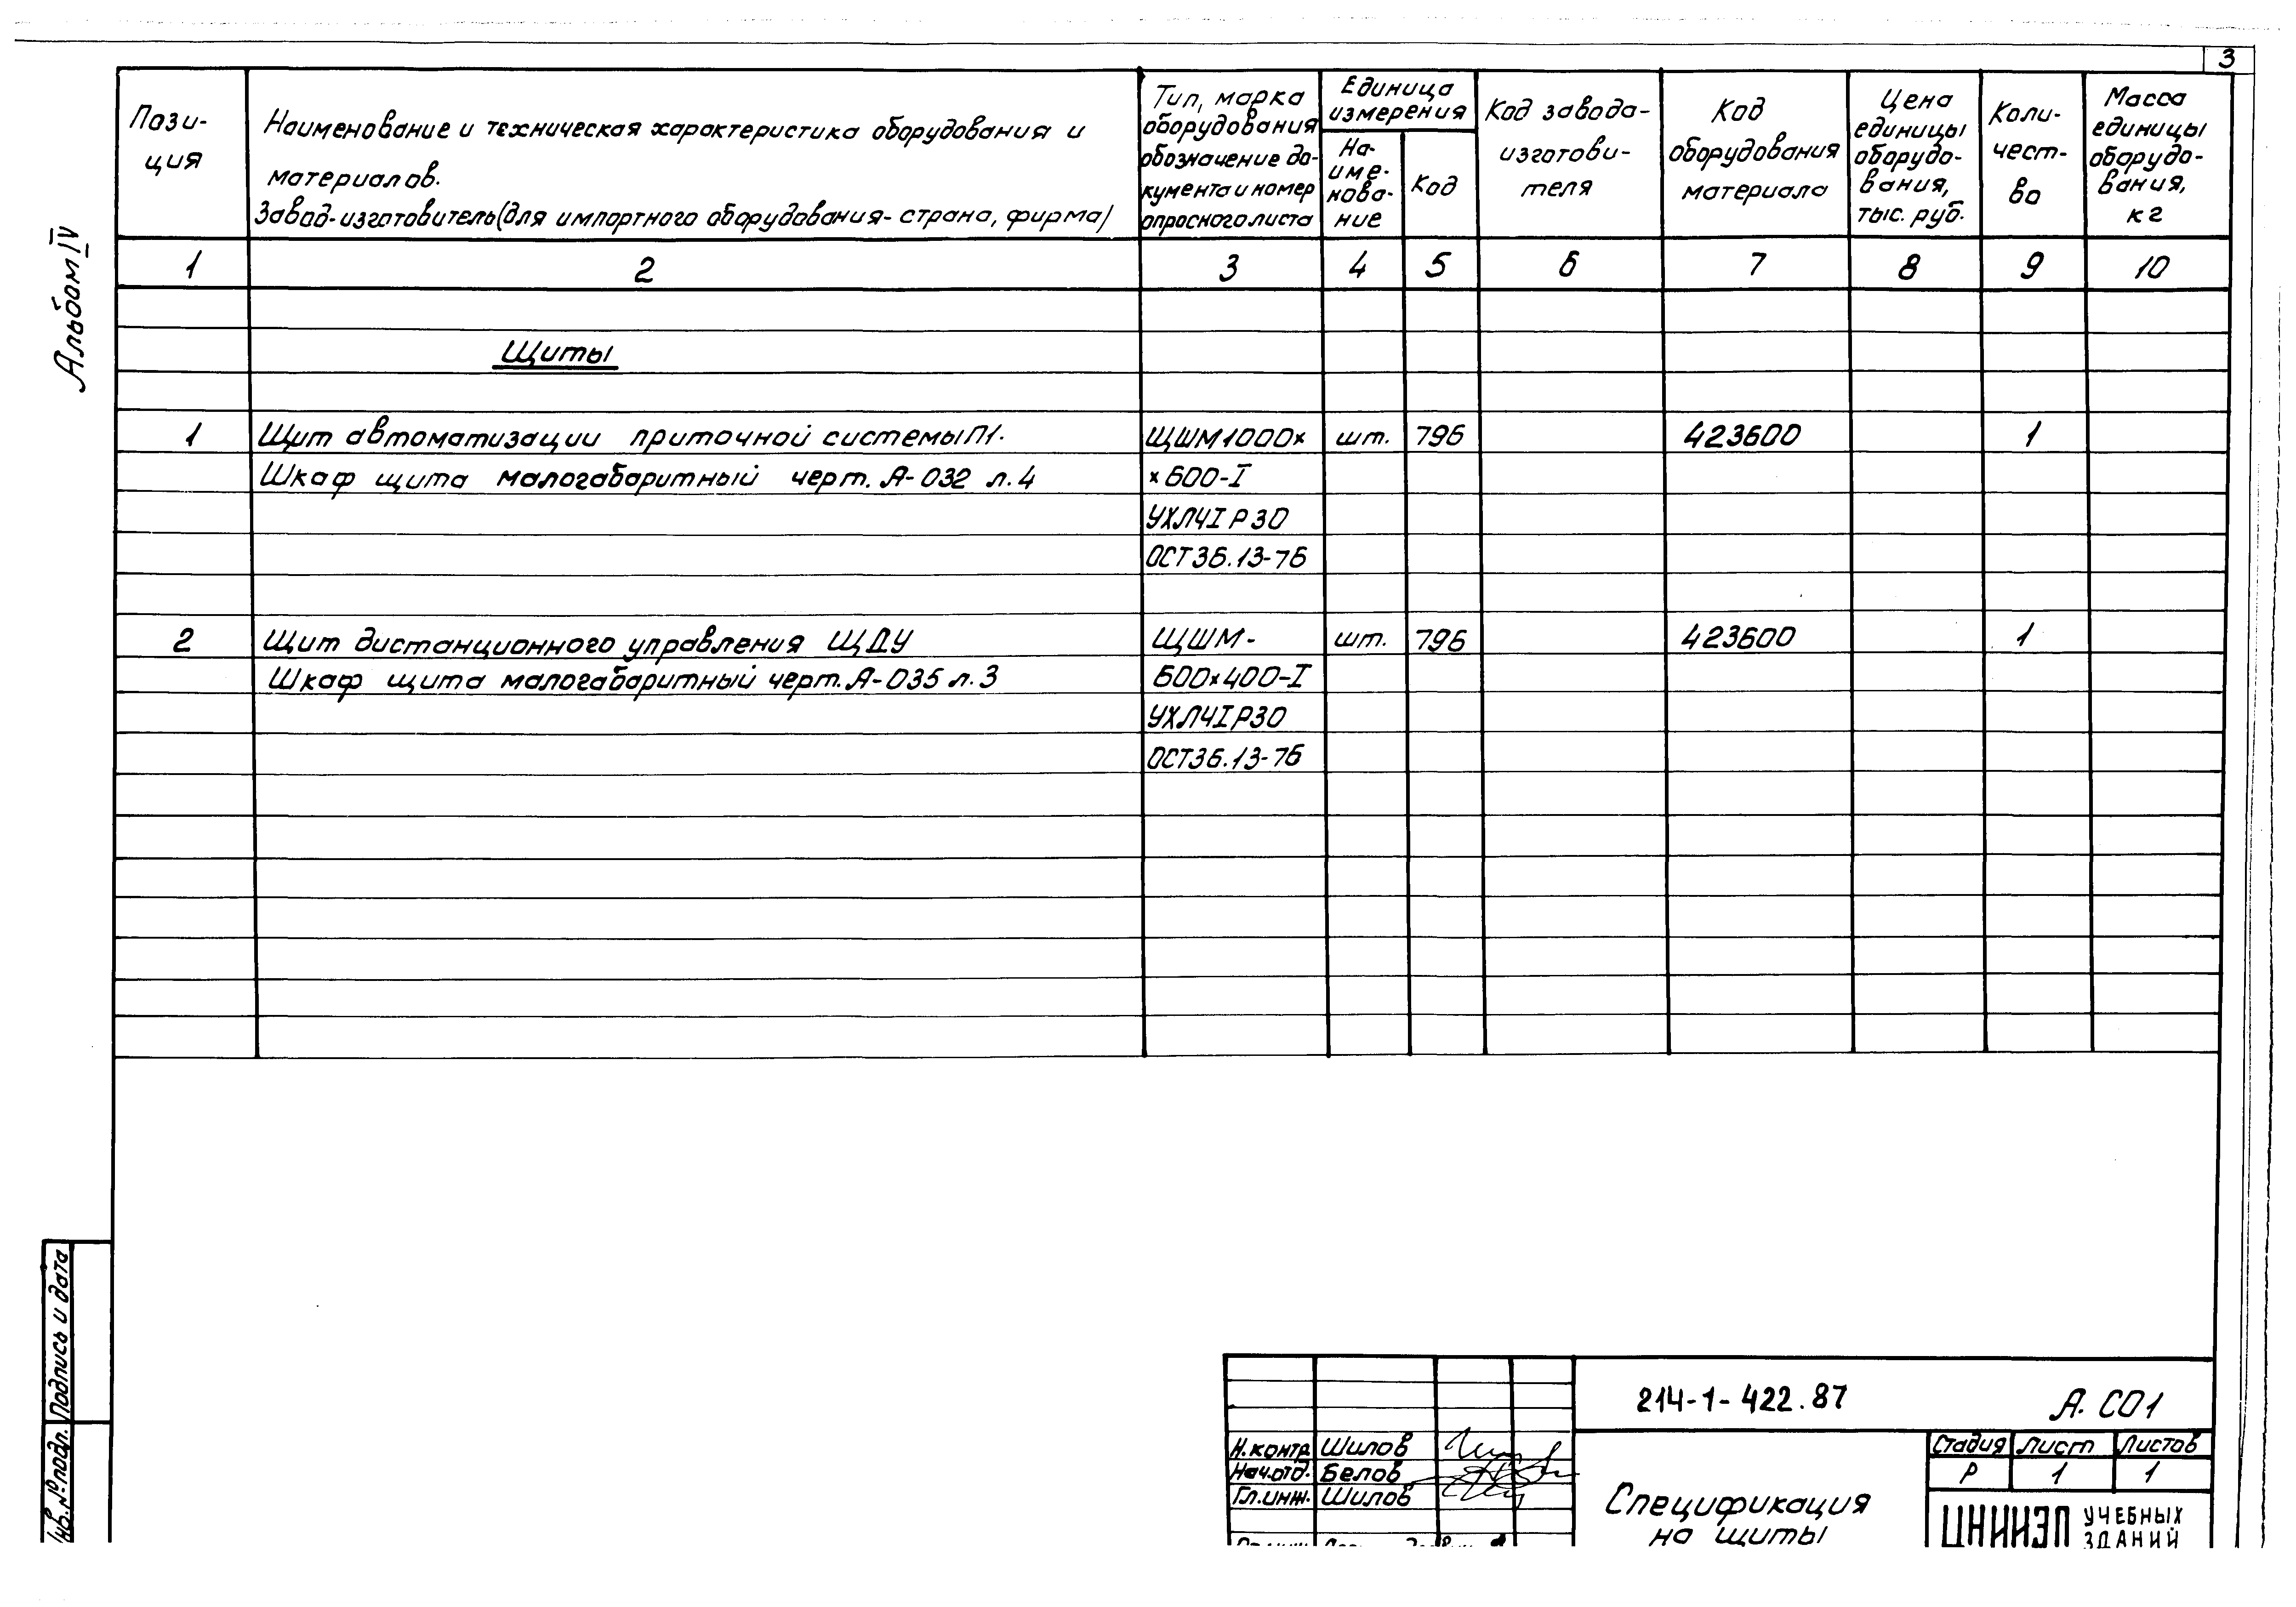 3
Альбом IV
Пози-
ция
Наименование и техническая характеристика оборудования и
материалов.
Завод-изготовитель (для импортного оборудования - страна, фирма)
Тип, марка
оборудования
обозначение до-
кумента и номер
опросного листа
Единица
измерения
На-
име-
нова-
ние
Код
Код завода-
изготови-
теля
Код
оборудования
материала
Цена
единицы
оборудо-
вания,
тыс. руб.
Коли-
чест-
во
Масса
единицы
оборудо-
вания,
кг
1 2 3 4 5 6 7 8 9 10
Щиты
1 Щит автоматизации приточной системы П1. ЩШМ1000х шт. 796 423600 1
Шкаф щита малогабаритный черт. А-032 л.4 х600-I
УХЛ4IР30
ОСТ36.13-76
2 Щит дистанционного управления ЩДУ ЩШМ- шт. 796 423600 1
Шкаф щита малогабаритный черт. А-035 л.3 600х400-I
УХЛ4IР30
ОСТ36.13-76
Подпись и дата
Инв. № подл.
214-1-422.87 А. СО1
Н.контр. Шилов
Нач.отд. Белов
Гл.инж. Шилов
Спецификация
на щиты
Стадия Лист Листов
Р 1 1
ЦНИИЭП УЧЕБНЫХ
ЗДАНИЙ